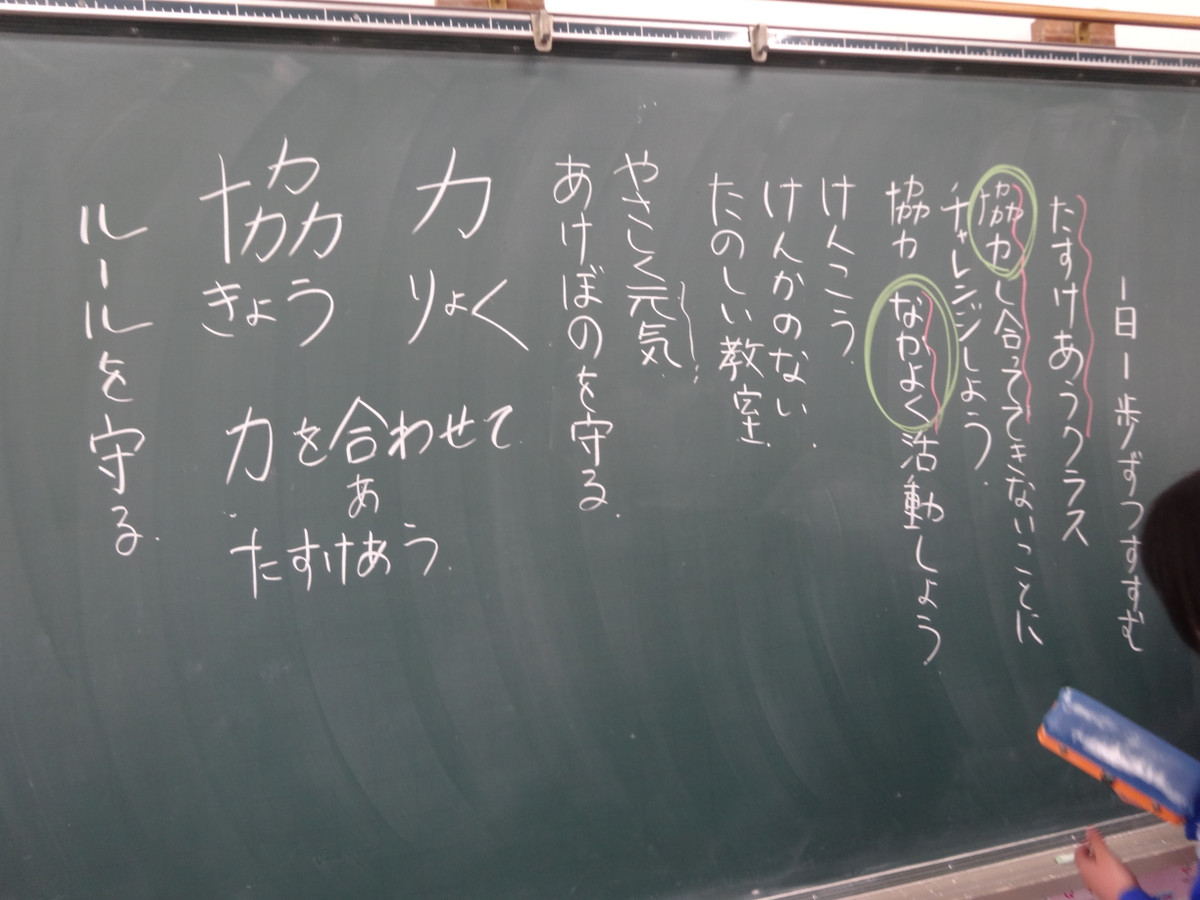 一日一歩ずつすすむ
たすけあうクラス
協力し合ってできないことに
チャレンジしよう。
協力 なかよく活動しよう
けんこう。
けんかのない.
たのしい教室.
やさしく元気
あけぼのを守る.
力 協
りょく きょう
力を合わせて
あ
たすけあう.
ルールを守る.